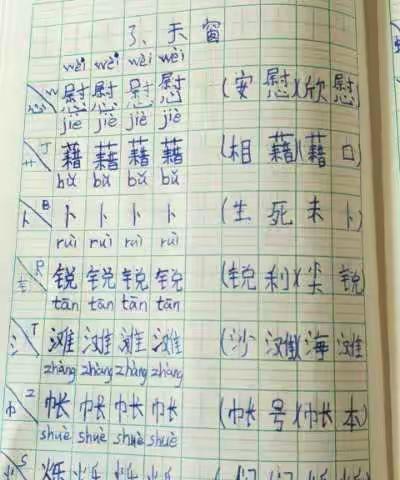 3、天窗
wèi wèi wèi wèi
心 W 慰 慰 慰 慰 (安慰)(欣慰)
jiè jiè jiè jiè
艹 J 藉 藉 藉 藉 (相藉)(藉口)
bǔ bǔ bǔ bǔ
卜 B 卜 卜 卜 卜 (生死未卜)
ruì ruì ruì ruì
钅 R 锐 锐 锐 锐 (锐利)(尖锐)
tān tān tān tān
氵 T 滩 滩 滩 滩 (沙滩)(海滩)
zhàng zhàng zhàng zhàng
巾 Z 帐 帐 帐 帐 (帐号)(帐本)
shuè shuè shuè shuè
S 烁 烁 烁 烁